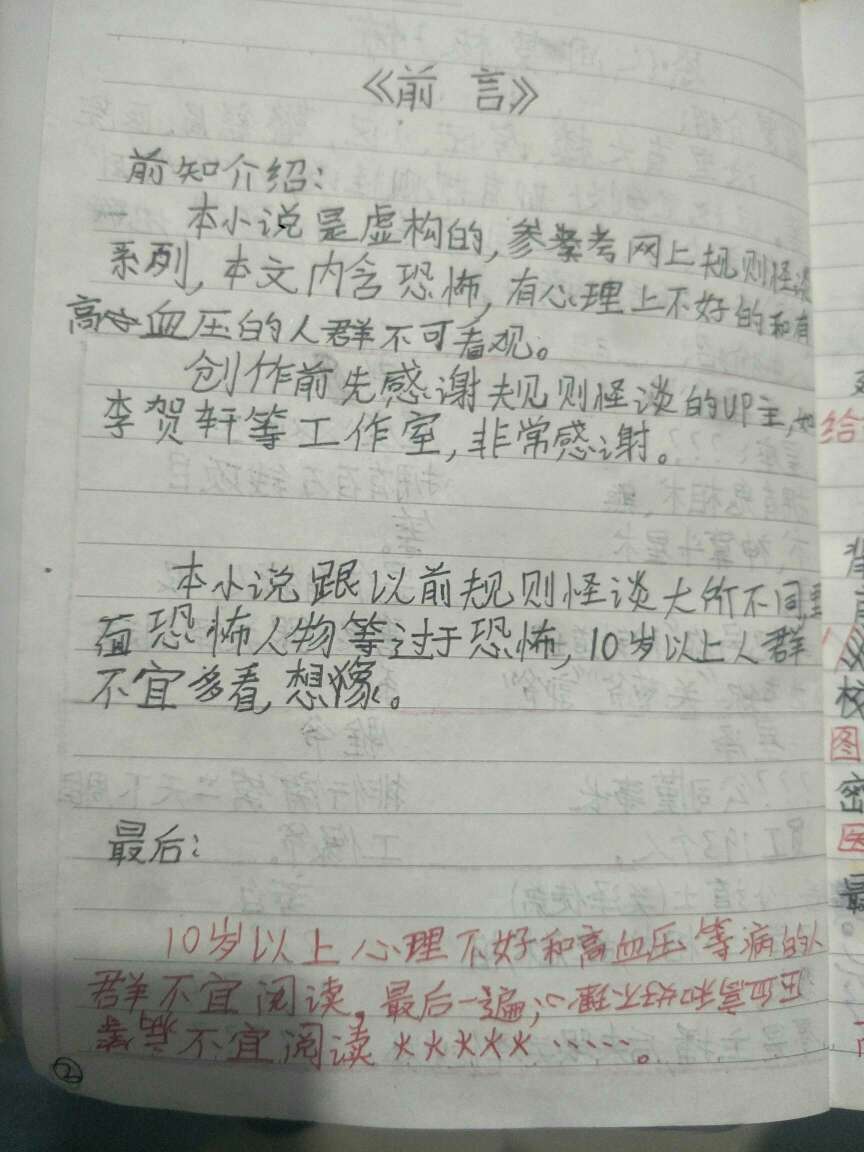 《前言》
前知介绍：
一 本小说是虚构的，参考网上规则怪谈
系列，本文内含恐怖，有心理上不好的和有
高血压的人群不可看观。
创作前先感谢规则怪谈的UP主，
李贺轩等工作室，非常感谢。
本小说跟以前规则怪谈大所不同
面恐怖人物等过于恐怖，10岁以上人群
不宜多看，想像。
最后：
10岁以上心理不好和高血压等病的人
群不宜阅读，最后一遍，心理不好和高血压
等病不宜阅读×××××……。
②
给
校
图
密
医
最